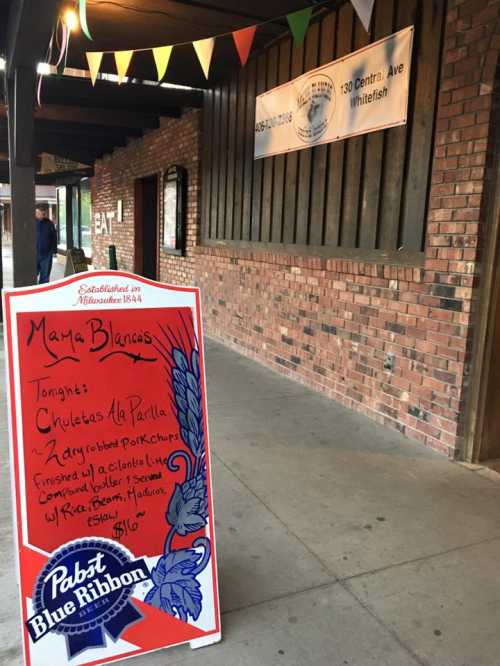 130 Central Ave
Whitefish
EAT
Established in
Milwaukee 1844
Mama Blanca's
Tonight:
Chuletas Ala Parilla
~ 2 dry robbed Pork chops
Finished w/ a cilantro lime
Compound butter & served
w/ Rice, Beans, Maduros,
& Slaw
$16~
Pabst
Blue Ribbon
BEER